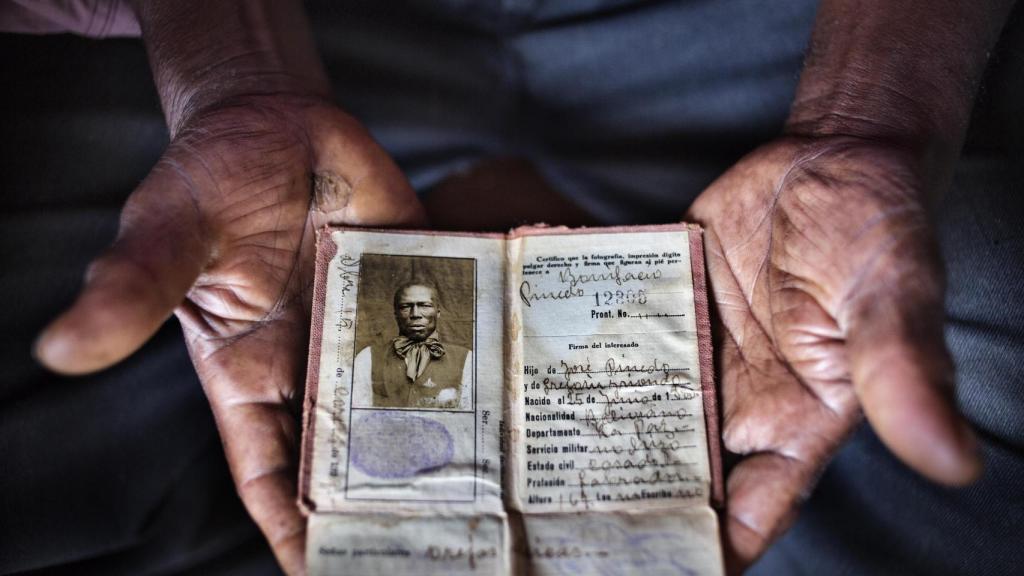 Certifico que la fotografía, impresión dígito
pulgar derecho y firma que figuras al pié per-
tenece a Bonifacio
Pinedo 12808
Pront. No.
Firma del interesado
Hijo de José Pinedo
y de
Nacido el 25 de Junio de 1
Nacionalidad Boliviano
Departamento La Paz
Servicio militar no hizo
Estado civil casado
Profesión labrador
Altura 164 Lee no Escribe no
Señas particulares orejas